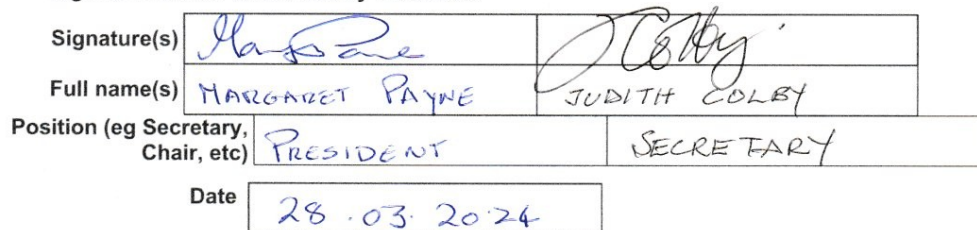 Signature(s)
Full name(s) MARGARET PAYNE JUDITH COLBY
Position (eg Secretary,
Chair, etc) PRESIDENT SECRETARY
Date 28.03.2024